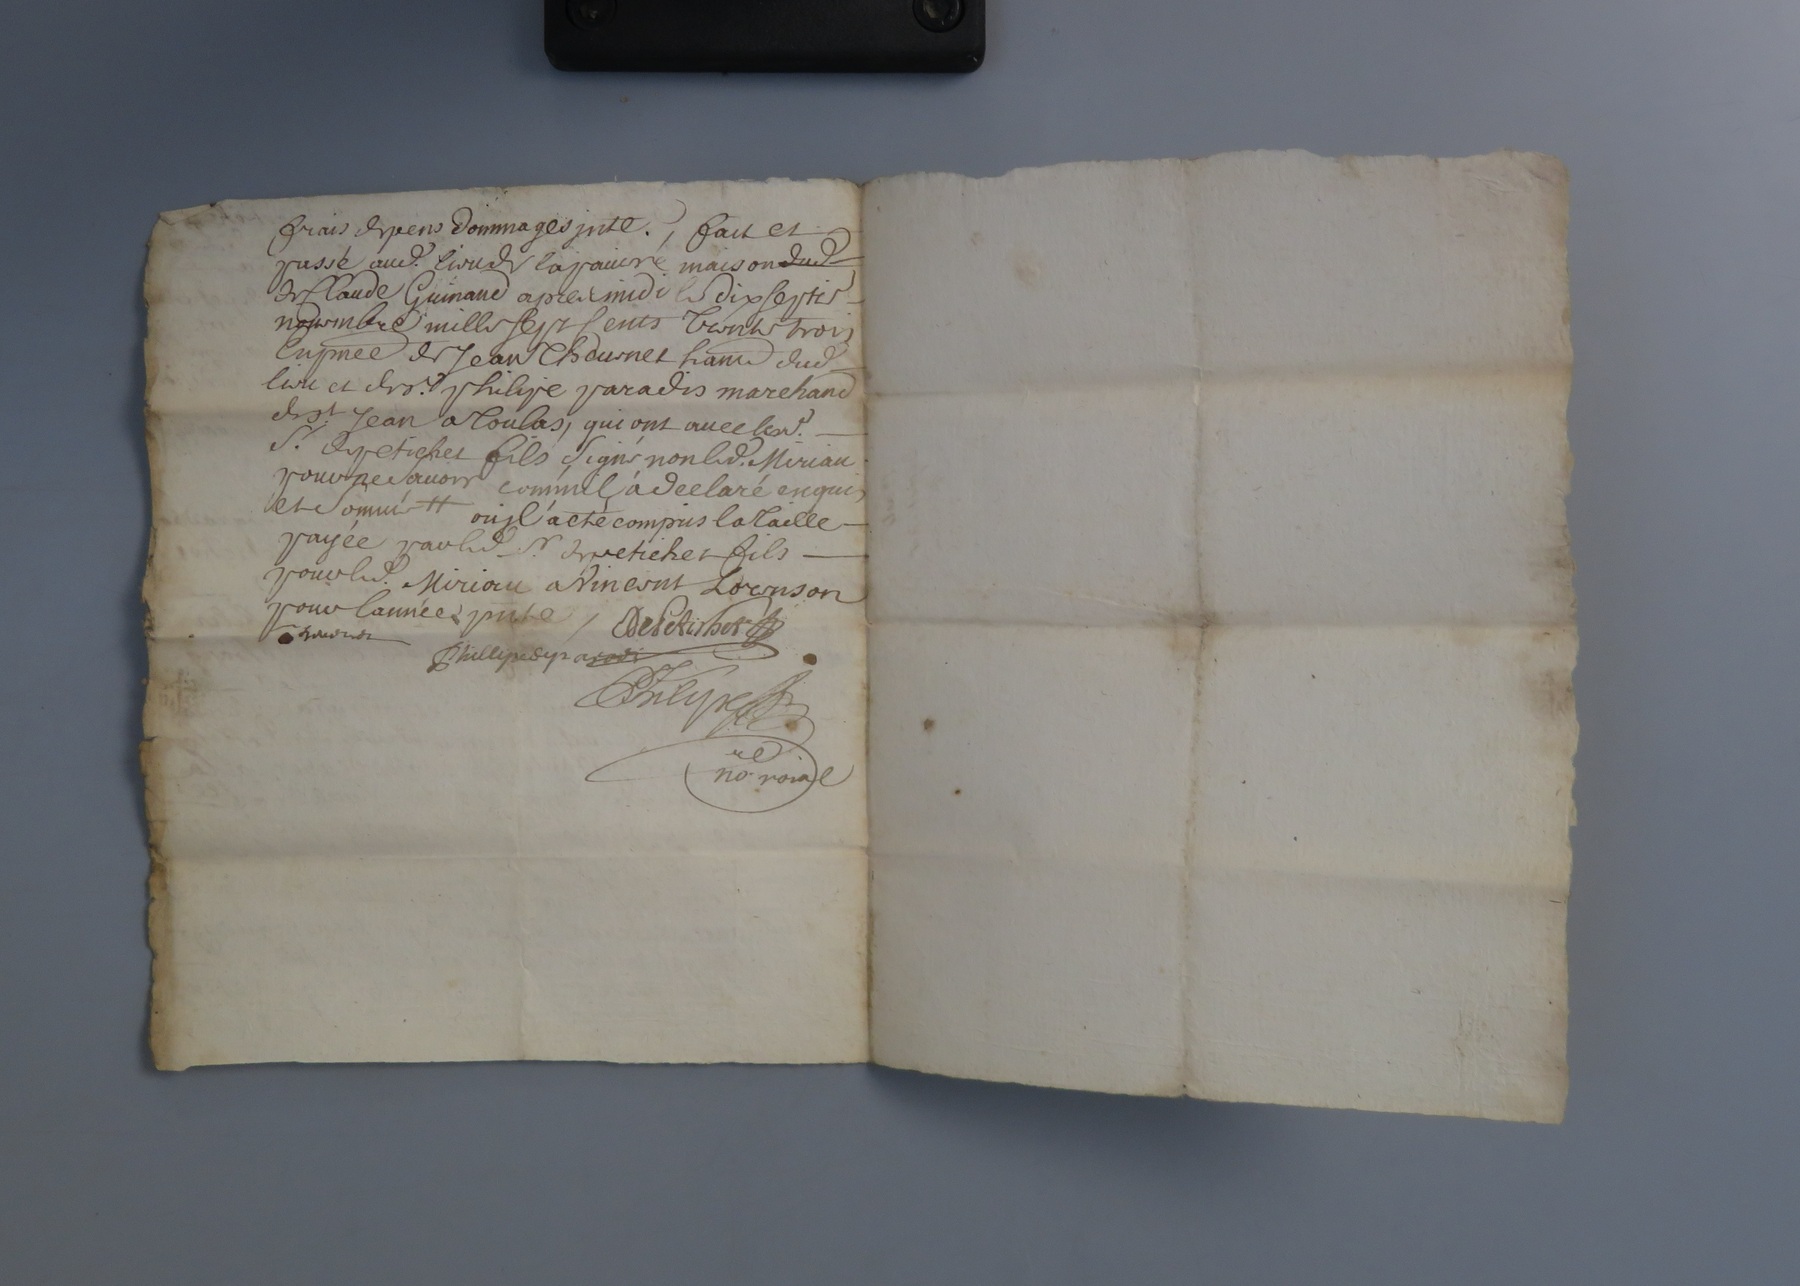 frais depens dommages jnte. / fait et
passé aud. lieu de lapauire maison dud
de Claude Guinaud apres midi le dixseptie
nouembre mille sept sents trente trois
En pnce de Jean Thournet hant dud
lieu et de sr. philipe paradis marchand
de st Jean a Toulas, qui ont auec led.
Sr. depetichet fils signé non led. Miriau
pour ne sauoir comm'il a declaré enquis
et sommé ouil acté compris la Taille
payée par led. Sr. depetichet fils
pour led. Miriau a Vincent
pour lannée pnte / DePetichet
Phillipe
Philipe
no. re roial